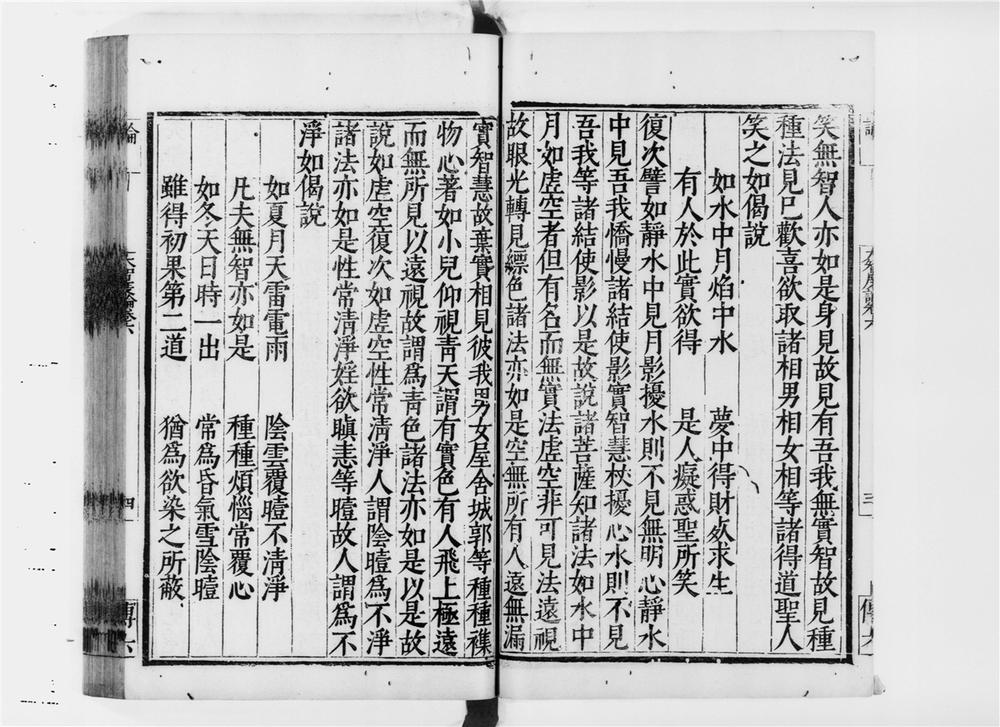 笑無智人亦如是身見故見有吾我無實智故見種
種法見已歡喜欲取諸相男相女相等諸得道聖人
笑之如偈說
如水中月焰中水　夢中得財死求生
有人於此實欲得　是人癡惑聖所笑
復次譬如靜水中見月影擾水則不見無明心靜水
中見吾我憍慢諸結使影實智慧杖擾心水則不見
吾我等諸結使影以是故說諸菩薩知諸法如水中
月如虛空者但有名而無實法虛空非可見法遠視
故眼光轉見縹色諸法亦如是空無所有人遠無漏
實智慧故棄實相見彼我男女屋舍城郭等種種襍
物心著如小兒仰視青天謂有實色有人飛上極遠
而無所見以遠視故謂爲青色諸法亦如是以是故
說如虛空復次如虛空性常清淨人謂陰曀爲不淨
諸法亦如是性常清淨婬欲瞋恚等曀故人謂爲不
淨如偈說
如夏月天雷電雨　陰雲覆曀不清淨
凡夫無智亦如是　種種煩惱常覆心
如冬天日時一出　常爲昏氣雪陰曀
雖得初果第二道　猶爲欲染之所蔽
大智度論卷六
三
傳六
論
大智度論卷六
四
傳六